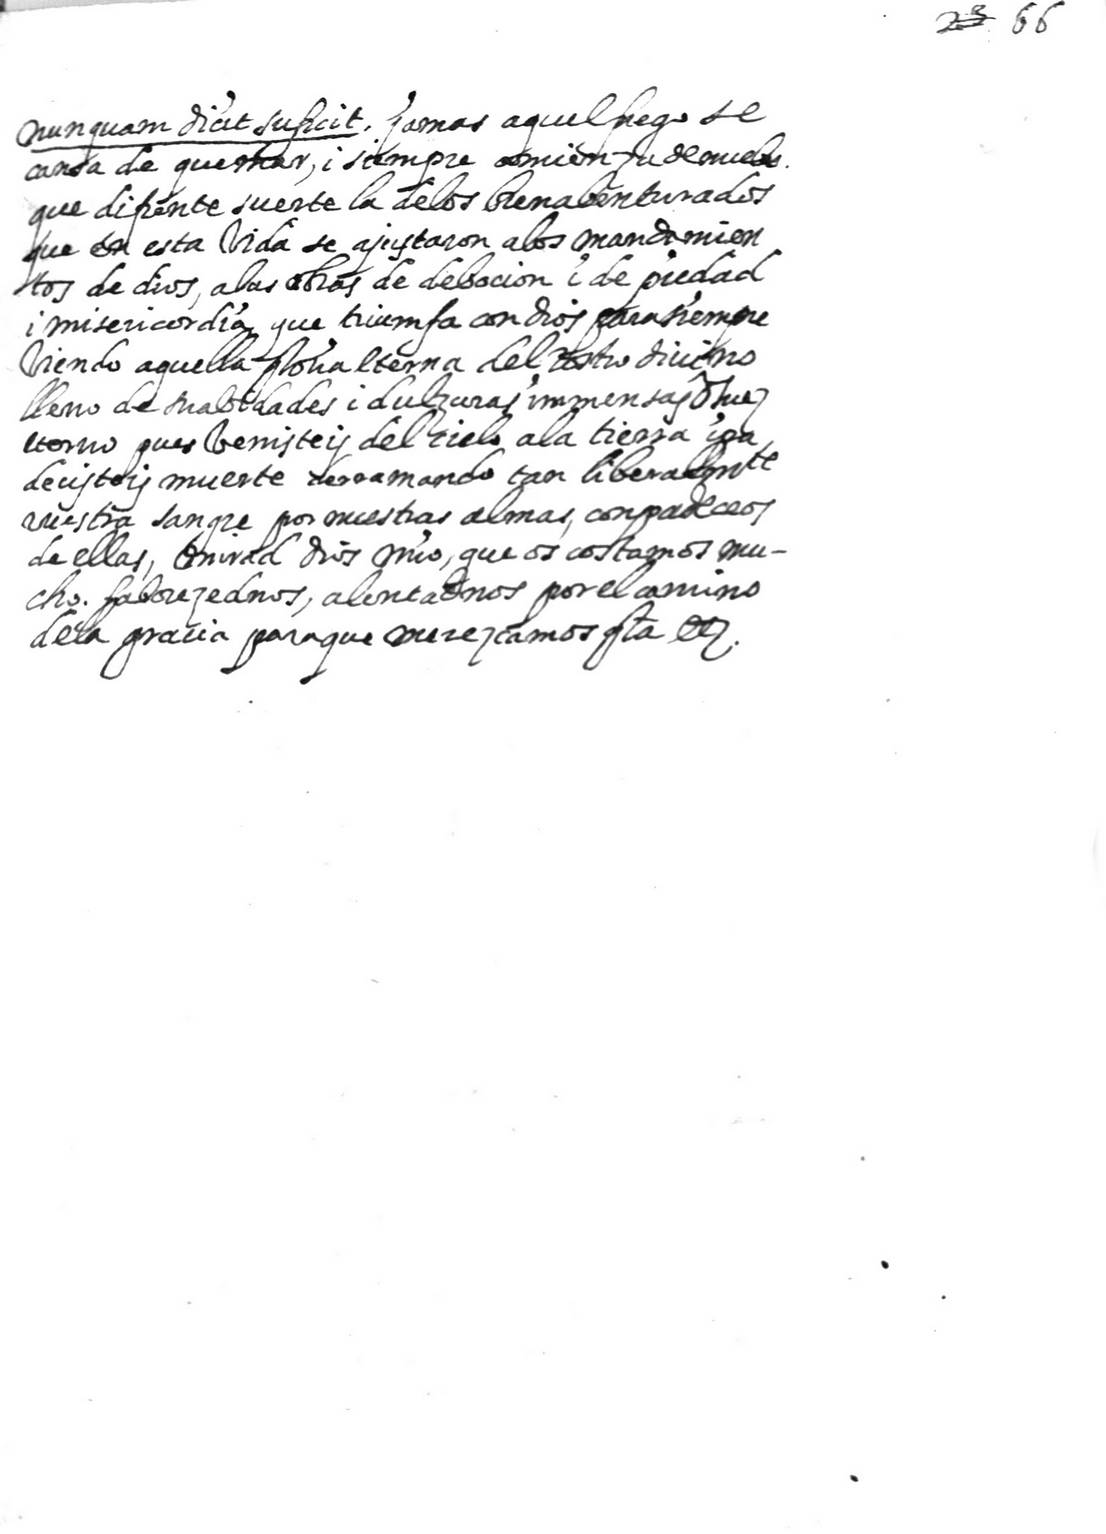 66
nunquam dicit suficit. jamas aquel fuego se
cansa de quemar, i siempre comienza de nuebo.
que difrente suerte la delos bienabenturados
que en esta Vida se ajustaron alos mandamien
tos de dios, alas obras de debocion i de piedad
i misericordia, que triumfa con dios para siempre
Viendo aquella gloria eterna del rostro divino
lleno de suabidades i dulzuras immensas, O Juez
eterno pues Venisteis del cielo ala tierra i pa
decisteis muerte derramando tan liberalmte
vuestra sangre por nuestras almas, conpadeceos
de ellas, mirad dios mio, que os costamos mu-
cho. faborezednos, alentadnos por el camino
dela gracia paraque merezcamos gla etz.